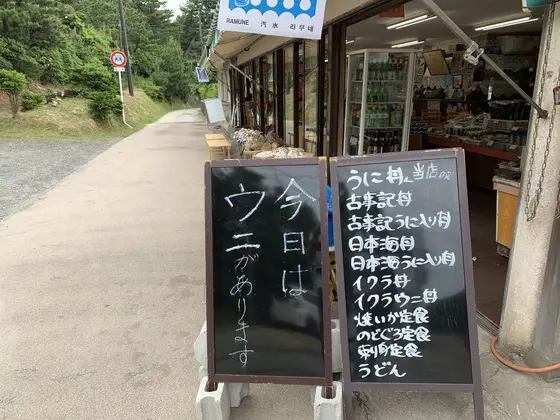 RAMUNE 汽水 라무네
今日は
ウニがあります
うに丼
古事記丼
古事記うに入り丼
日本海丼
日本海うに入り丼
イクラ丼
イクラウニ丼
焼いか定食
のどぐろ定食
刺身定食
うどん